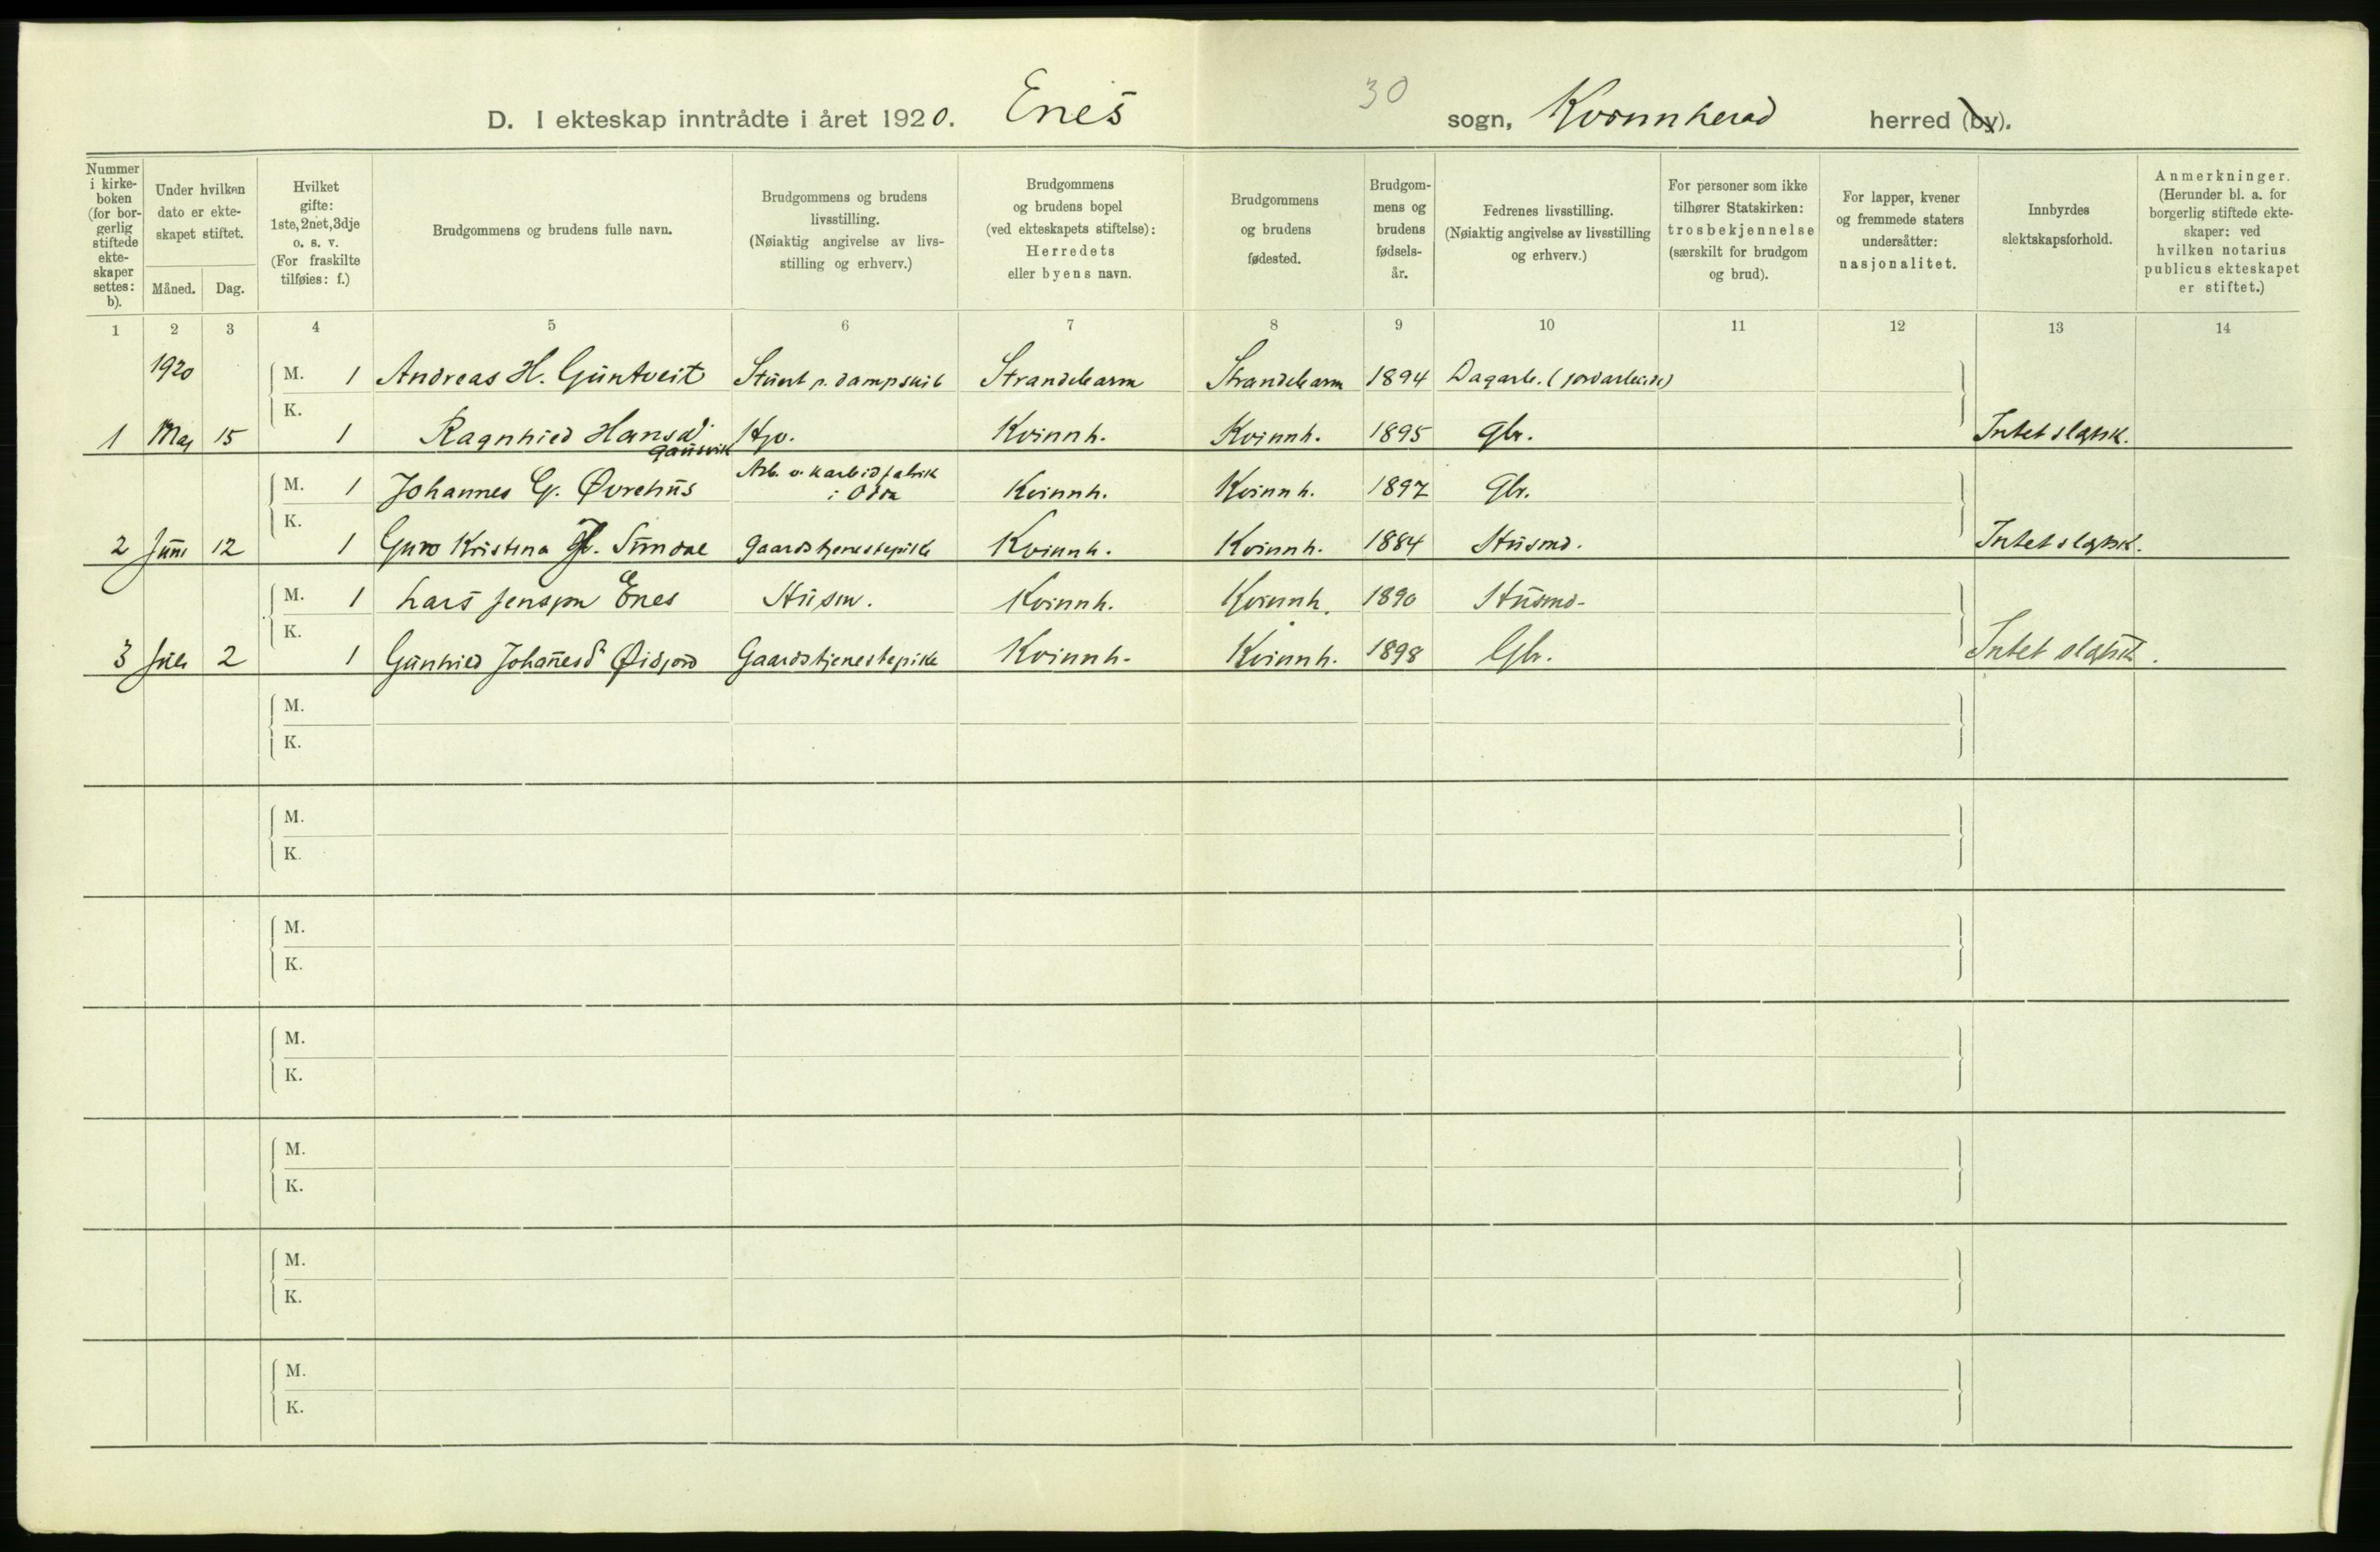 30
D. I ekteskap inntrådte i året 1920. Enes sogn, Kvinnherad herred (by).
Nummer i kirke-boken (for bor-gerlig stiftede ekte-skaper settes: b).
Under hvilken dato er ekte-skapet stiftet.
Måned. Dag.
Hvilket gifte: 1ste, 2net, 3dje o. s. v. (For fraskilte tilføies: f.)
Brudgommens og brudens fulle navn.
Brudgommens og brudens livsstilling. (Nøiaktig angivelse av livs-stilling og erhverv.)
Brudgommens og brudens bopel (ved ekteskapets stiftelse): Herredets eller byens navn.
Brudgommens og brudens fødested.
Brudgom-mens og brudens fødsels-år.
Fedrenes livsstilling. (Nøiaktig angivelse av livsstilling og erhverv.)
For personer som ikke tilhører Statskirken: trosbekjennelse (særskilt for brudgom og brud).
For lapper, kvener og fremmede staters undersåtter: nasjonalitet.
Innbyrdes slektskapsforhold.
Anmerkninger. (Herunder bl. a. for borgerlig stiftede ekte-skaper: ved hvilken notarius publicus ekteskapet er stiftet.)
1 2 3 4 5 6 7 8 9 10 11 12 13 14
1920 M. 1 Andreas H. Guntveit Stuert p. dampskib Strandebarm Strandebarm 1894 Dagarb. (jordarbeide)
1 Maj 15 K. 1 Ragnhild Hansd. Gausvik Hjv. Kvinnh. Kvinnh. 1895 Gbr. Intet slgtsk.
M. 1 Johannes G. Øvrehus Arb. v. karbidfabrik i Odda Kvinnh. Kvinnh. 1897 Gbr.
2 Juni 12 K. 1 Guro Kristina Sundal Gaardstjenestepike Kvinnh. Kvinnh. 1884 Husmd. Intet slgtsk.
M. 1 Lars Jenson Enes Husm. Kvinnh. Kvinnh. 1890 Husmd.
3 Juli 2 K. 1 Gunhild Johanesd Øidjord Gaardstjenestepike Kvinnh. Kvinnh. 1898 Gbr. Intet slgtsk.
M.
K.
M.
K.
M.
K.
M.
K.
M.
K.
M.
K.
M.
K.